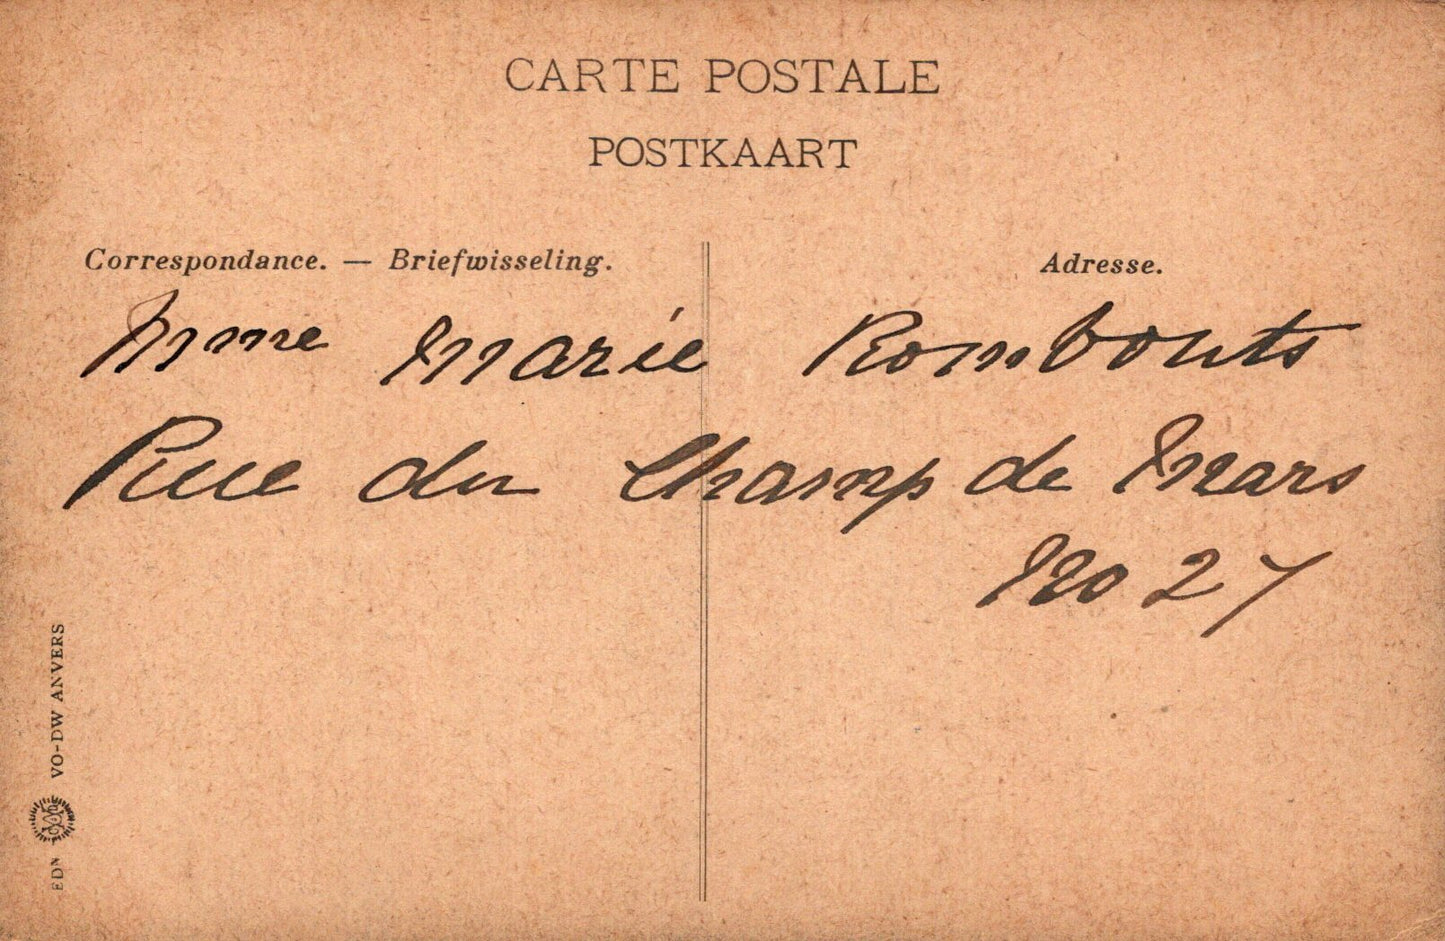 CARTE POSTALE
POSTKAART
Correspondance. — Briefwisseling.
Adresse.
Mme Marie Rombouts
Rue du Champ de Mars
No 27
EDN VO-DW ANVERS